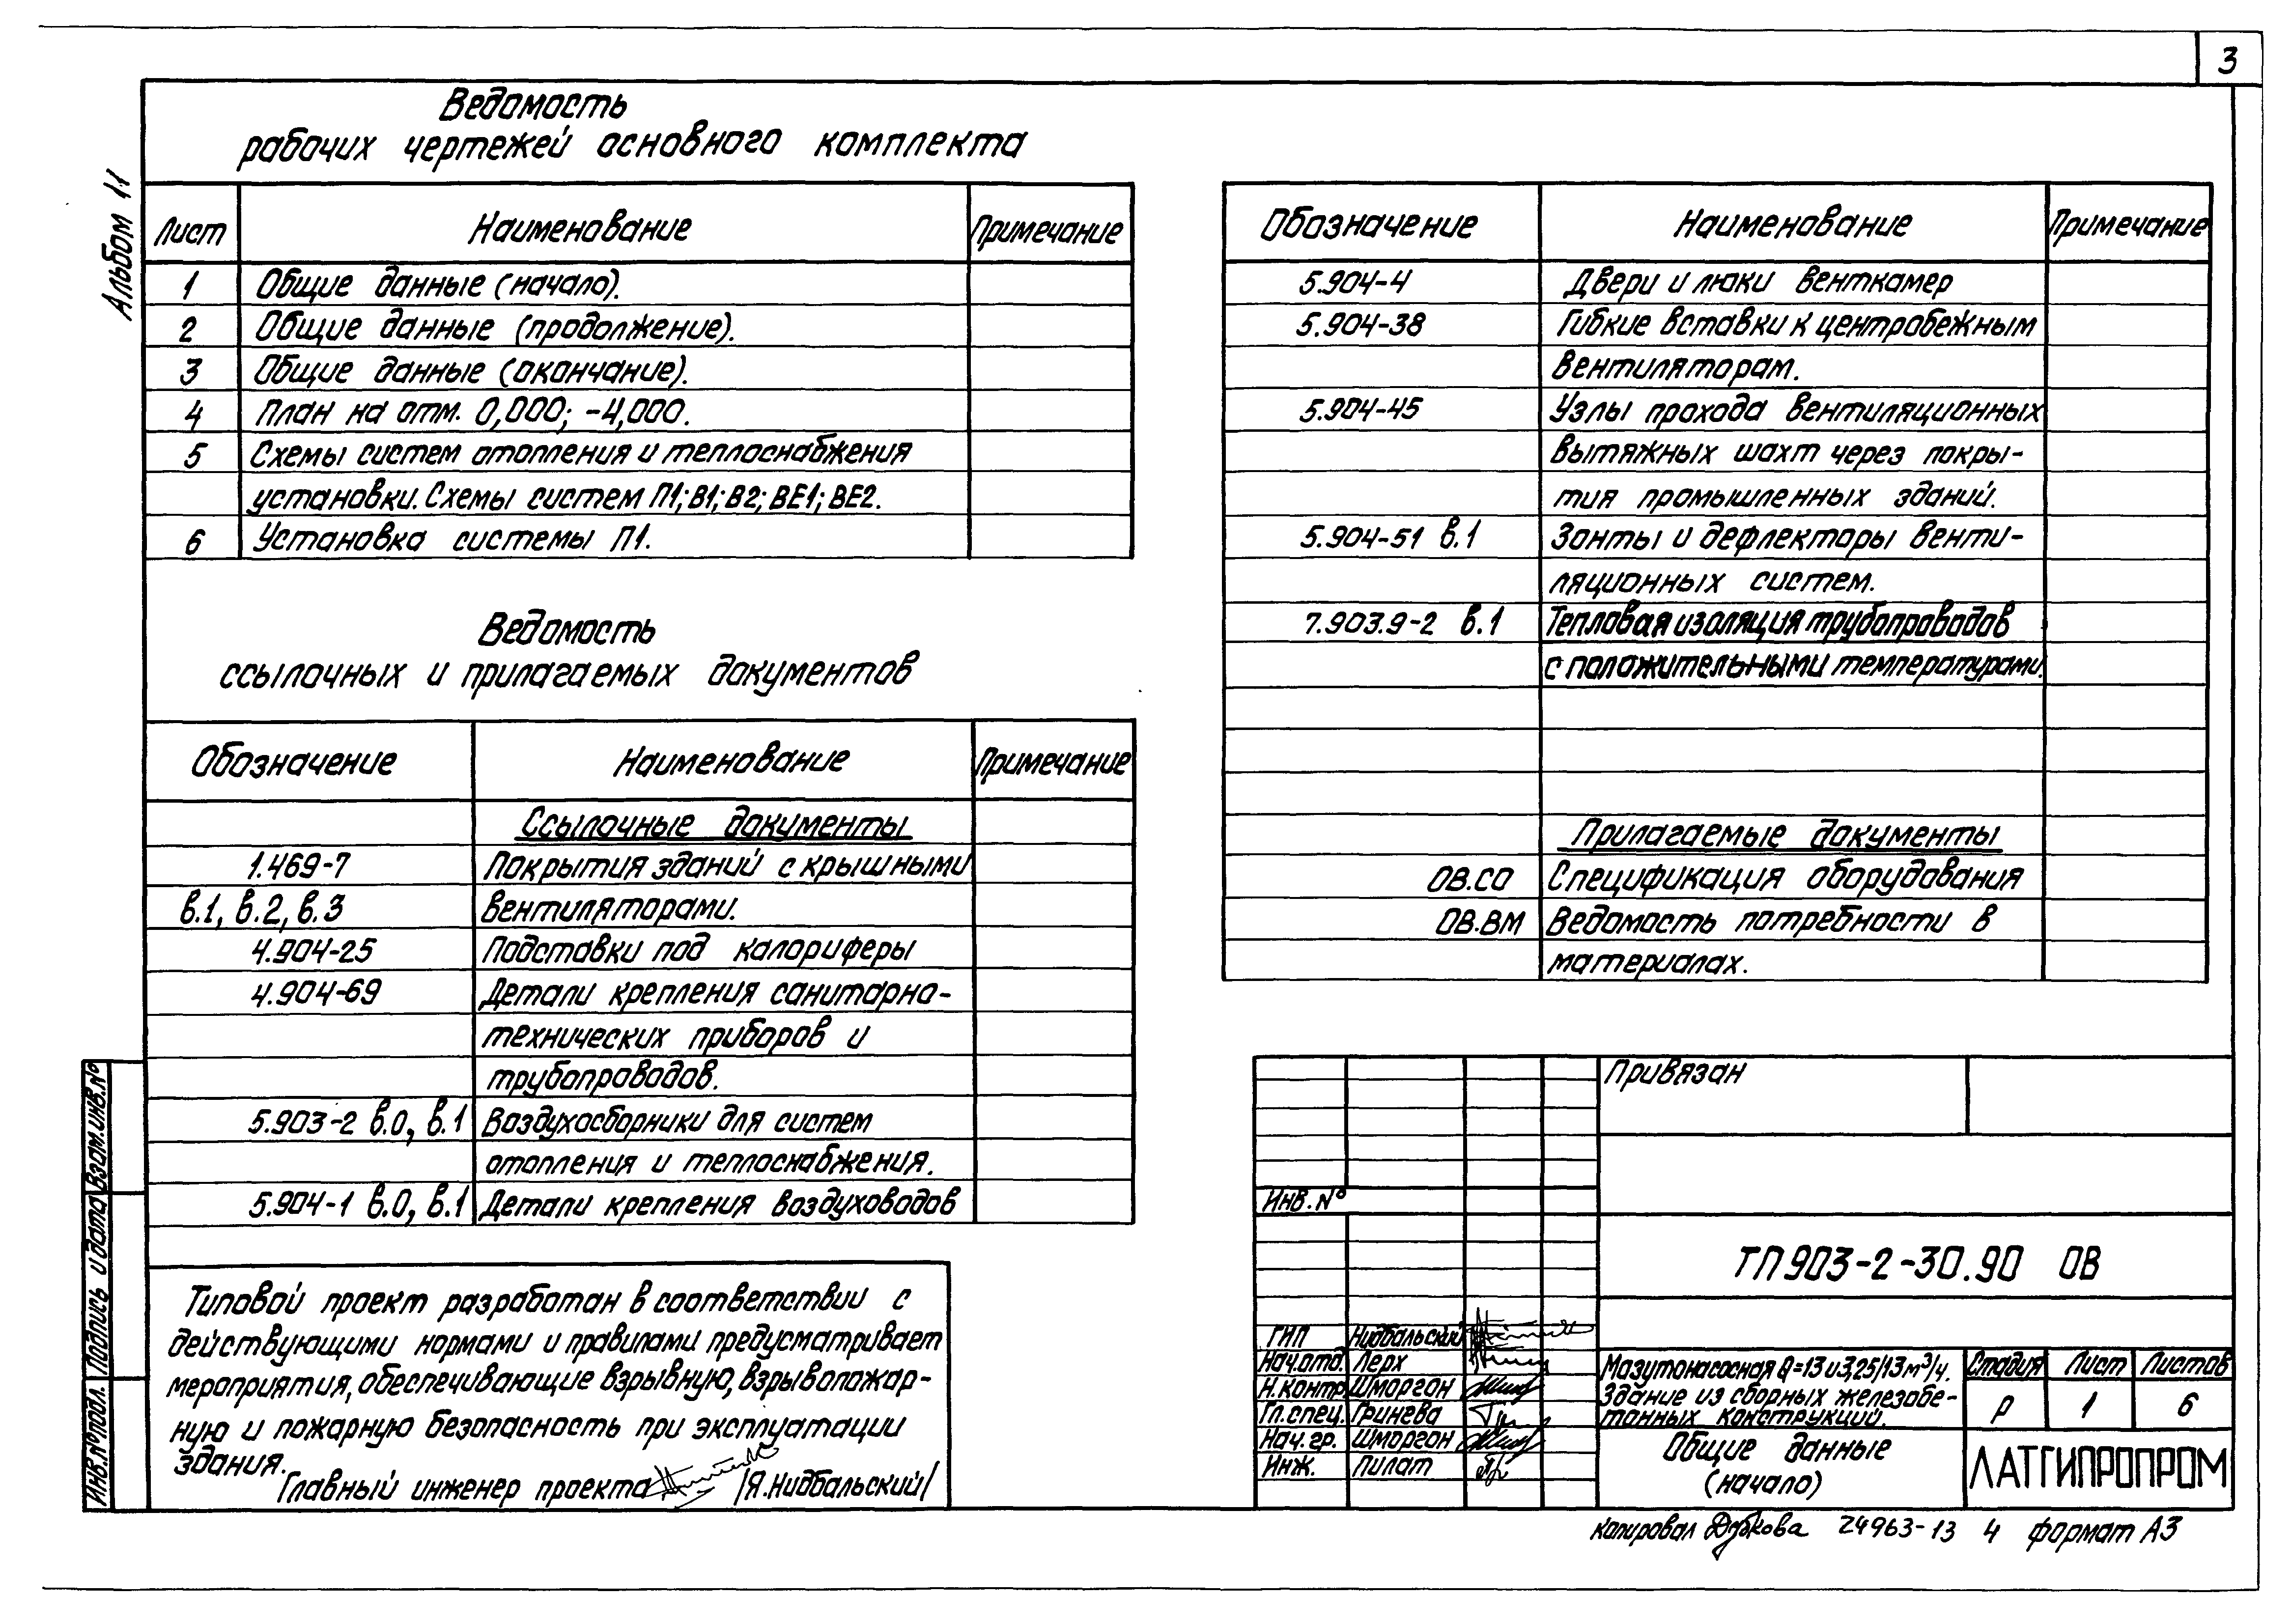 3
Альбом 11
Ведомость
рабочих чертежей основного комплекта
Лист Наименование Примечание
1 Общие данные (начало).
2 Общие данные (продолжение).
3 Общие данные (окончание).
4 План на отм. 0,000; -4,000.
5 Схемы систем отопления и теплоснабжения
установки. Схемы систем П1; В1; В2; ВЕ1; ВЕ2.
6 Установка системы П1.
Ведомость
ссылочных и прилагаемых документов
Обозначение Наименование Примечание
Ссылочные документы
1.469-7 Покрытия зданий с крышными
в.1, в.2, в.3 вентиляторами.
4.904-25 Подставки под калориферы
4.904-69 Детали крепления санитарно-
технических приборов и
трубопроводов.
5.903-2 в.0, в.1 Воздухосборники для систем
отопления и теплоснабжения.
5.904-1 в.0, в.1 Детали крепления воздуховодов
Обозначение Наименование Примечание
5.904-4 Двери и люки венткамер
5.904-38 Гибкие вставки к центробежным
вентиляторам.
5.904-45 Узлы прохода вентиляционных
вытяжных шахт через покры-
тия промышленных зданий.
5.904-51 в.1 Зонты и дефлекторы венти-
ляционных систем.
7.903.9-2 в.1 Тепловая изоляция трубопроводов
с положительными температурами.
Прилагаемые документы
ОВ.СО Спецификация оборудования
ОВ.ВМ Ведомость потребности в
материалах.
Типовой проект разработан в соответствии с
действующими нормами и правилами предусматривает
мероприятия, обеспечивающие взрывную, взрывопожар-
ную и пожарную безопасность при эксплуатации
здания.
Главный инженер проекта /Я.Нидбальский/
Взам.инв.№
Подпись и дата
Инв.№подл.
Привязан
Инв.№
ТП 903-2-30.90 ОВ
ГИП Нидбальский
Нач.отд. Лерх
Н.контр. Шморгон
Гл.спец. Гринева
Нач.гр. Шморгон
Инж. Пилат
Мазутонасосная Q=13 и 3,25/13 м³/ч.
Здание из сборных железобе-
тонных конструкций.
Стадия Лист Листов
Р 1 6
Общие данные
(начало)
ЛАТГИПРОПРОМ
копировал Дубкова 24963-13 4 формат А3